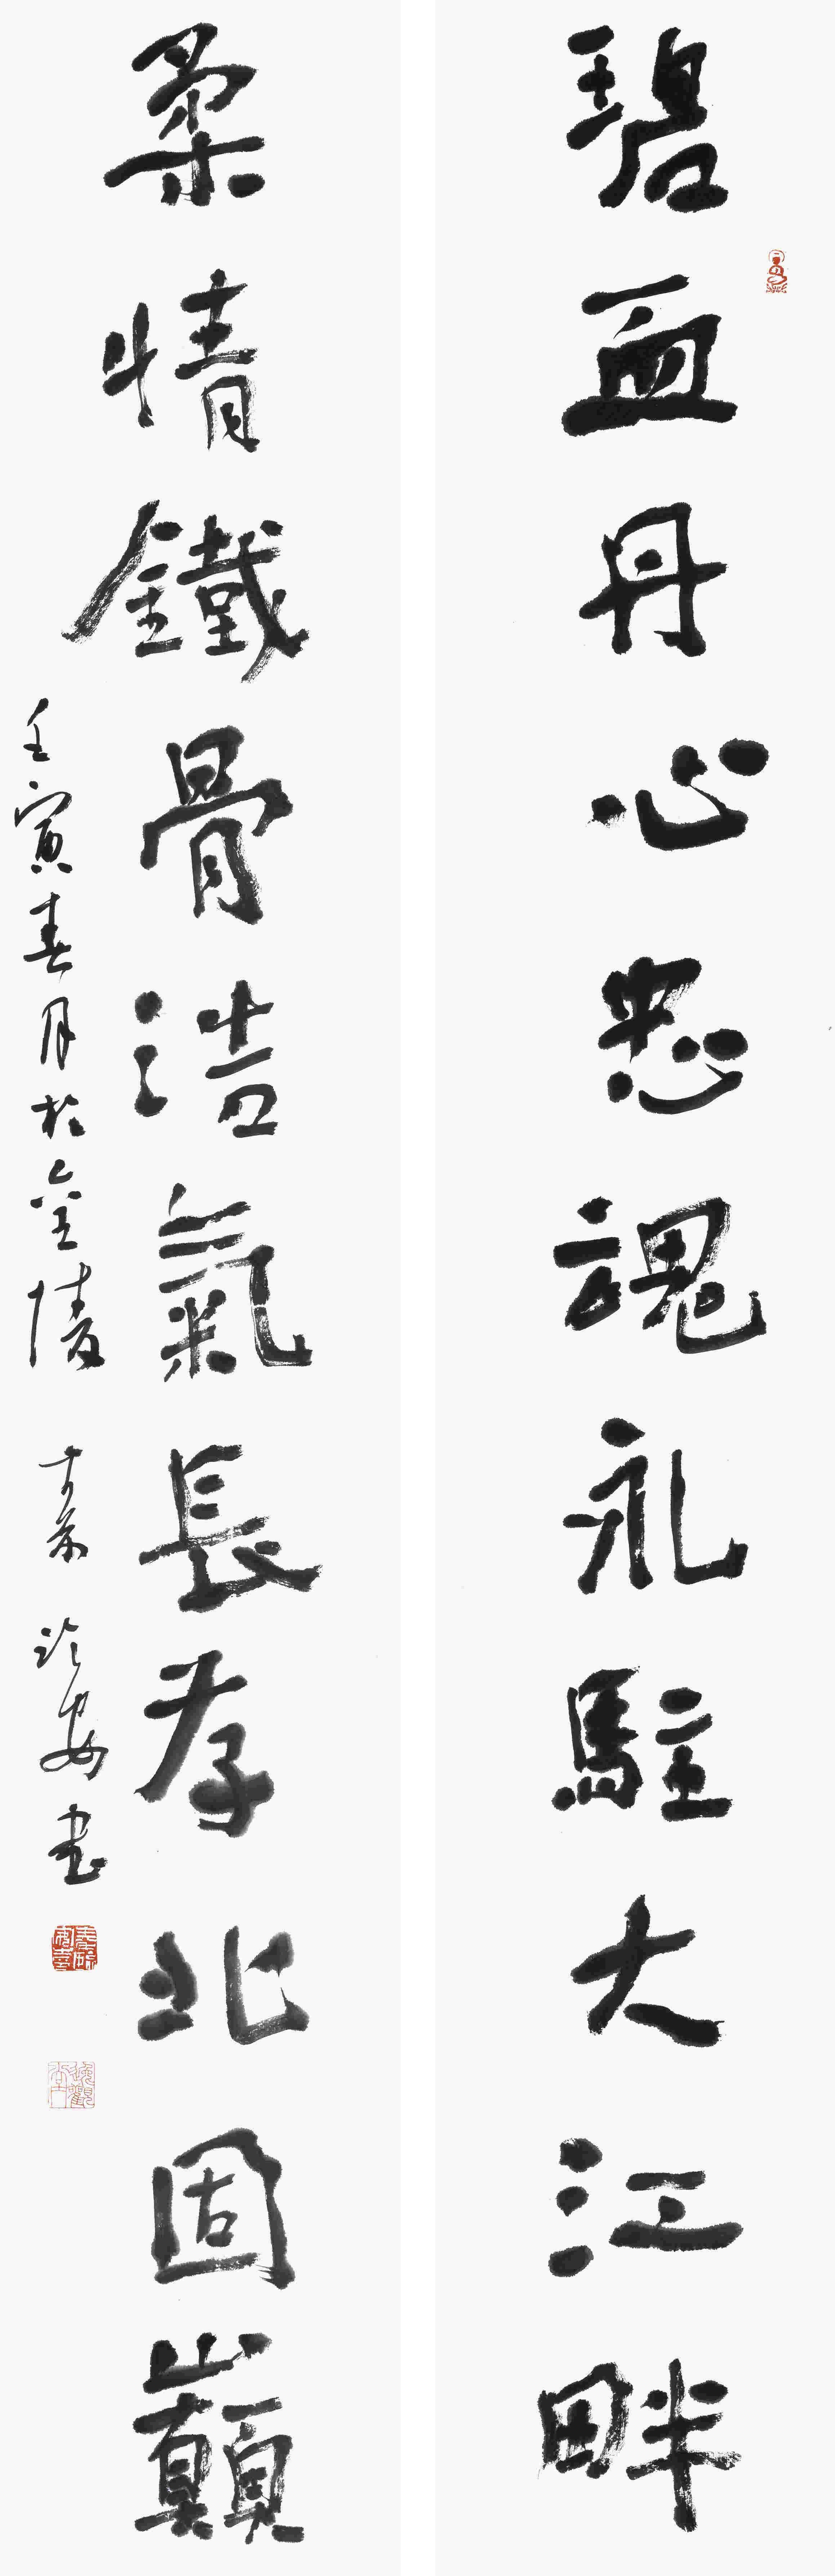 碧血丹心忠魂永駐大江畔
柔情鐵骨浩氣長存北固巔
壬寅春月於金陵 書